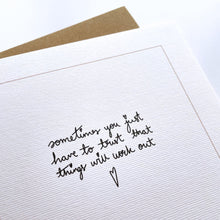 sometimes you just
have to trust that
things will work out